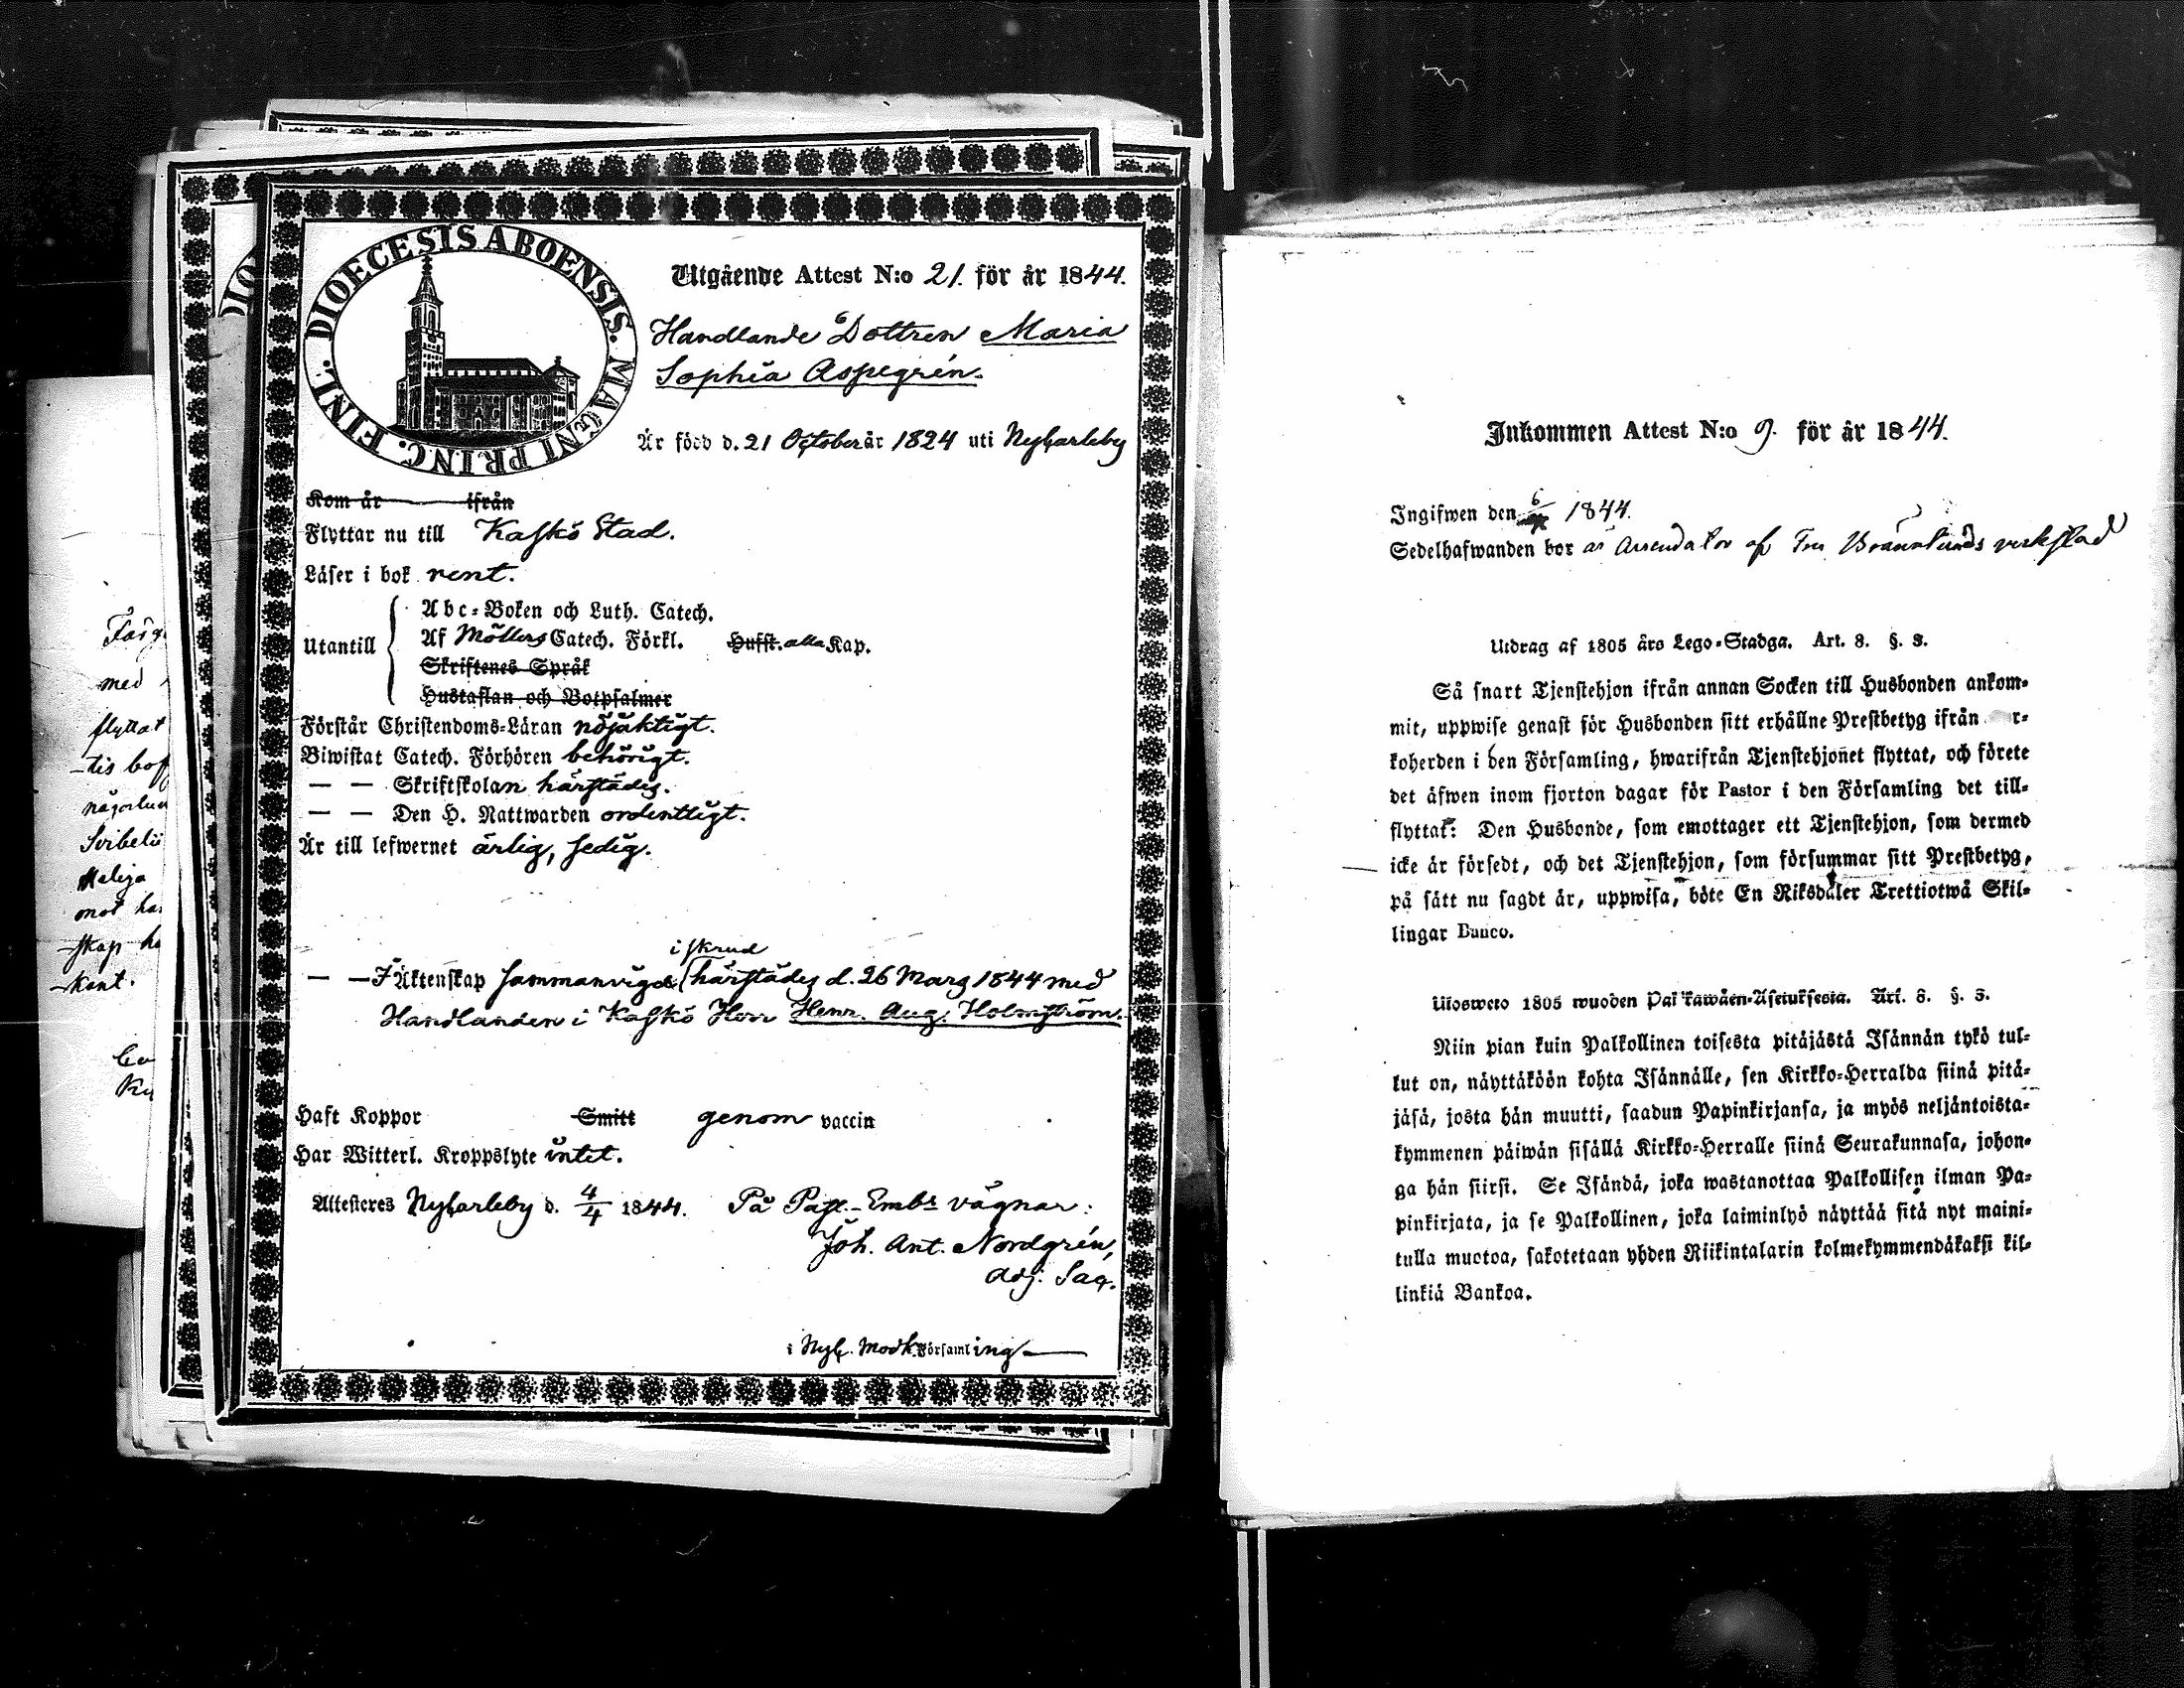 DIOECESIS ABOENSIS. MAGNI PRINC. FINL.
Utgående Attest N:o 21. för år 1844.
Handlande Dottren Maria
Sophia Aspegrén.
Är född d. 21 October år 1824 uti Nykarleby
Kom år ifrån
Flyttar nu till Kaskö Stad.
Läser i bok rent.
Utantill
Abc-Boken och Luth. Catech.
Af Möllers Catech. Förkl. Hufst. alla Kap.
Skriftenes Språk
Hustaflan och Botpsalmer
Förstår Christendoms-Läran nöjaktigt.
Biwistat Catech. Förhören behörigt.
— — Skriftskolan härstädes.
— — Den H. Nattwarden ordentligt.
Är till lefwernet ärlig, sedig.
i skrud
— — I Äktenskap sammanvigd härstädes d. 26 Mars 1844 med
Handlanden i Kaskö Herr Henr. Aug. Holmström.
Haft Koppor Smitt genom vaccin
Har Witterl. Kroppslyte intet.
Attesteres Nykarleby d. 4/4 1844. På Past.-Embs vägnar:
Joh. Ant. Nordgrén,
Adj. Sac.
i Nyk. Modk. Församling
Farg
med
flyttat
-tis bof
Heliga
mot
-skap
-kant.
DIO
Inkommen Attest N:o 9. för år 1844.
Ingifwen den 6 1844.
Sedelhafwanden bor är Arrendator af Fru Brännlunds verkstad
Utdrag af 1805 års Lego-Stadga. Art. 8. §. 3.
Så snart Tjenstehjon ifrån annan Socken till Husbonden ankom-
mit, uppwise genast för Husbonden sitt erhållne Prestbetyg ifrån r-
koherden i den Församling, hwarifrån Tjenstehjonet flyttat, och förete
det äfwen inom fjorton dagar för Pastor i den Församling det till-
flyttat: Den Husbonde, som emottager ett Tjenstehjon, som dermed
icke är försedt, och det Tjenstehjon, som försummar sitt Prestbetyg,
på sätt nu sagdt är, uppwisa, böte En Riksdaler Trettiotwå Skil-
lingar Banco.
Ulosweto 1805 wuoden Palkawäen-Asetuksesta. Art. 8. §. 3.
Niin pian kuin Palkollinen toisesta pitäjästä Isännän tykö tul-
lut on, näyttäköön kohta Isännälle, sen Kirkko-Herralda siinä pitä-
jäsä, josta hän muutti, saadun Papinkirjansa, ja myös neljäntoista-
kymmenen päiwän sisällä Kirkko-Herralle siinä Seurakunnasa, johon-
ga hän siirsi. Se Isändä, joka wastanottaa Palkollisen ilman Pa-
pinkirjata, ja se Palkollinen, joka laiminlyö näyttää sitä nyt maini-
tulla muotoa, sakotetaan yhden Riikintalarin kolmekymmendäkaksi kil-
linkiä Bankoa.